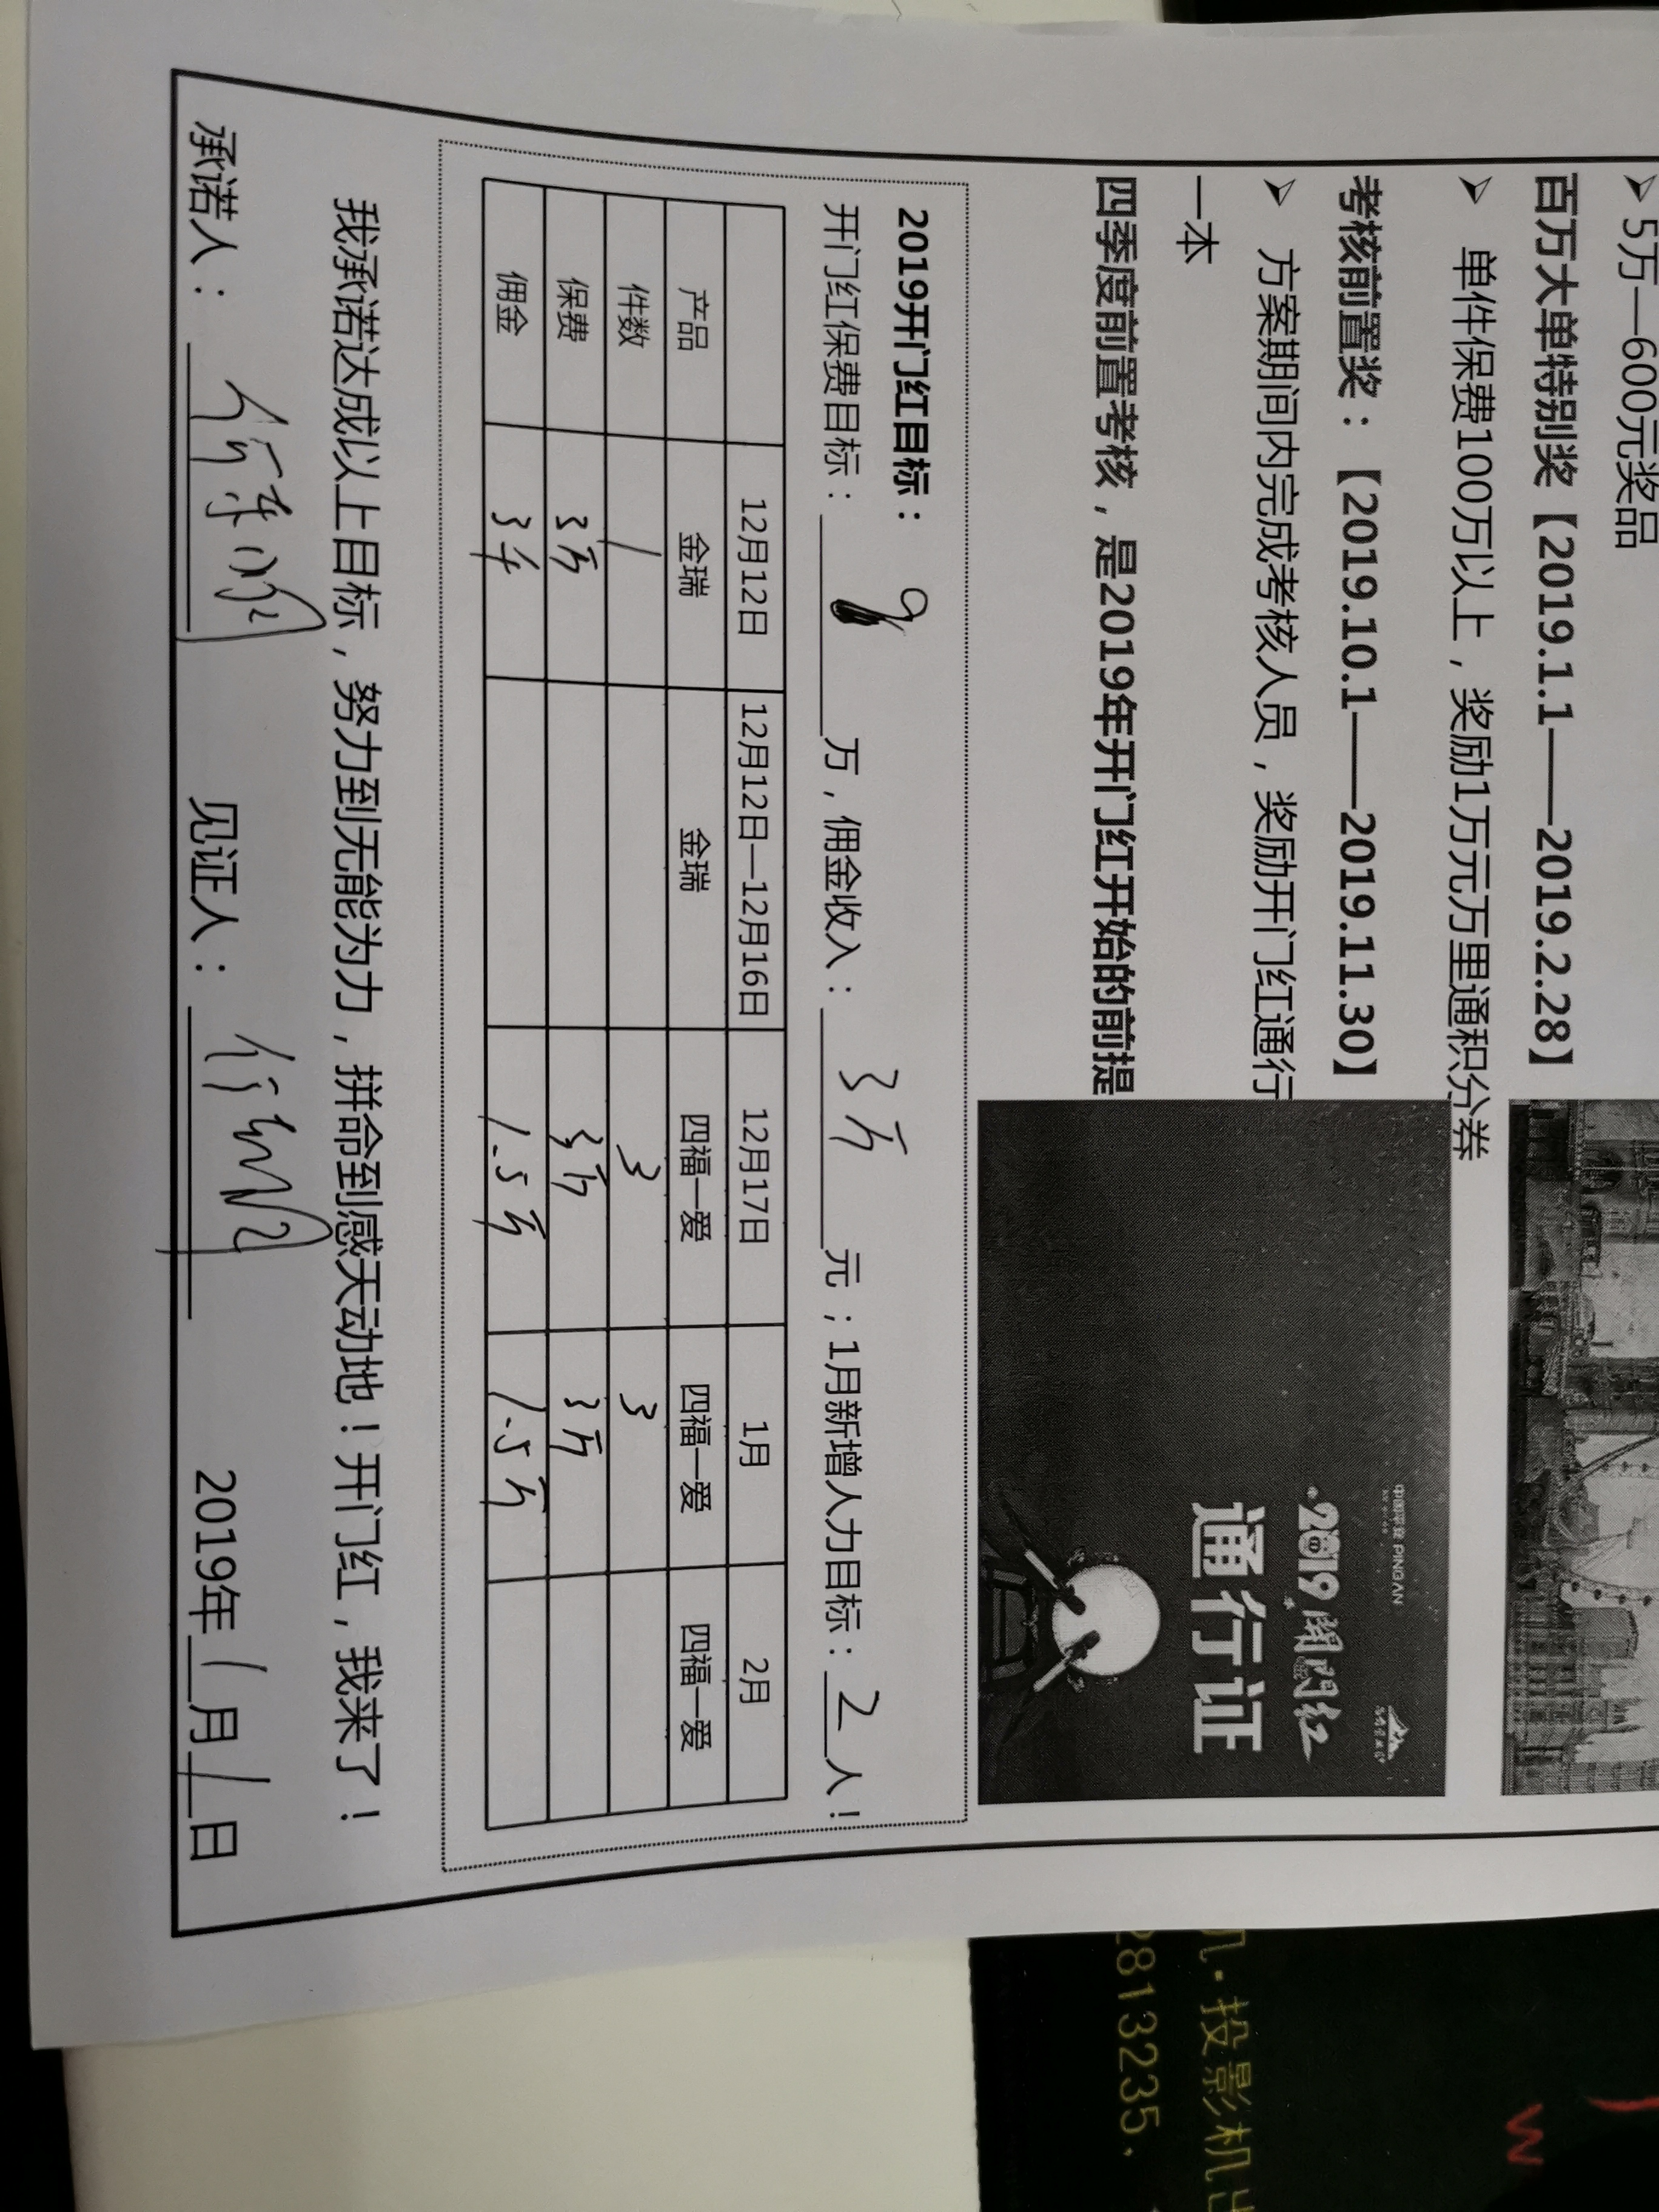 ➢ 5万—600元奖品
百万大单特别奖【2019.1.1——2019.2.28】
➢ 单件保费100万以上，奖励1万元万里通积分券
考核前置奖：【2019.10.1——2019.11.30】
➢ 方案期间内完成考核人员，奖励开门红通行
一本
四季度前置考核，是2019年开门红开始的前提
中国平安 PING AN
2019 開門红
通行证
2019开门红目标：
开门红保费目标：9万，佣金收入：3万元；1月新增人力目标：2人！
12月12日 12月12日—12月16日 12月17日 1月 2月
产品 金瑞 金瑞 四福一爱 四福一爱 四福一爱
件数 1 3 3
保费 3万 3万 3万
佣金 3千 1.5万 1.5万
我承诺达成以上目标，努力到无能为力，拼命到感天动地！开门红，我来了！
承诺人： 见证人： 2019年1月1日
机·投影机出
2813235.
W